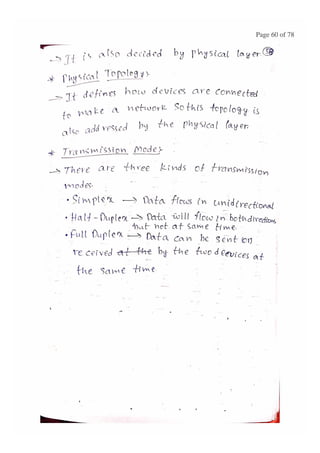 Page 60 of 78
→ It is also decided by physical layer.
* Physical Topology:
→ It defines how devices are connected
to make a network so this topology is
also addressed by the physical layer.
* Transmission Mode:
→ There are three kinds of transmission
modes.
• Simplex → Data flows in unidirectional
• Half-Duplex → Data will flow in both directions
but not at same time.
• Full Duplex → Data can be sent on
received at the by the two devices at
the same time